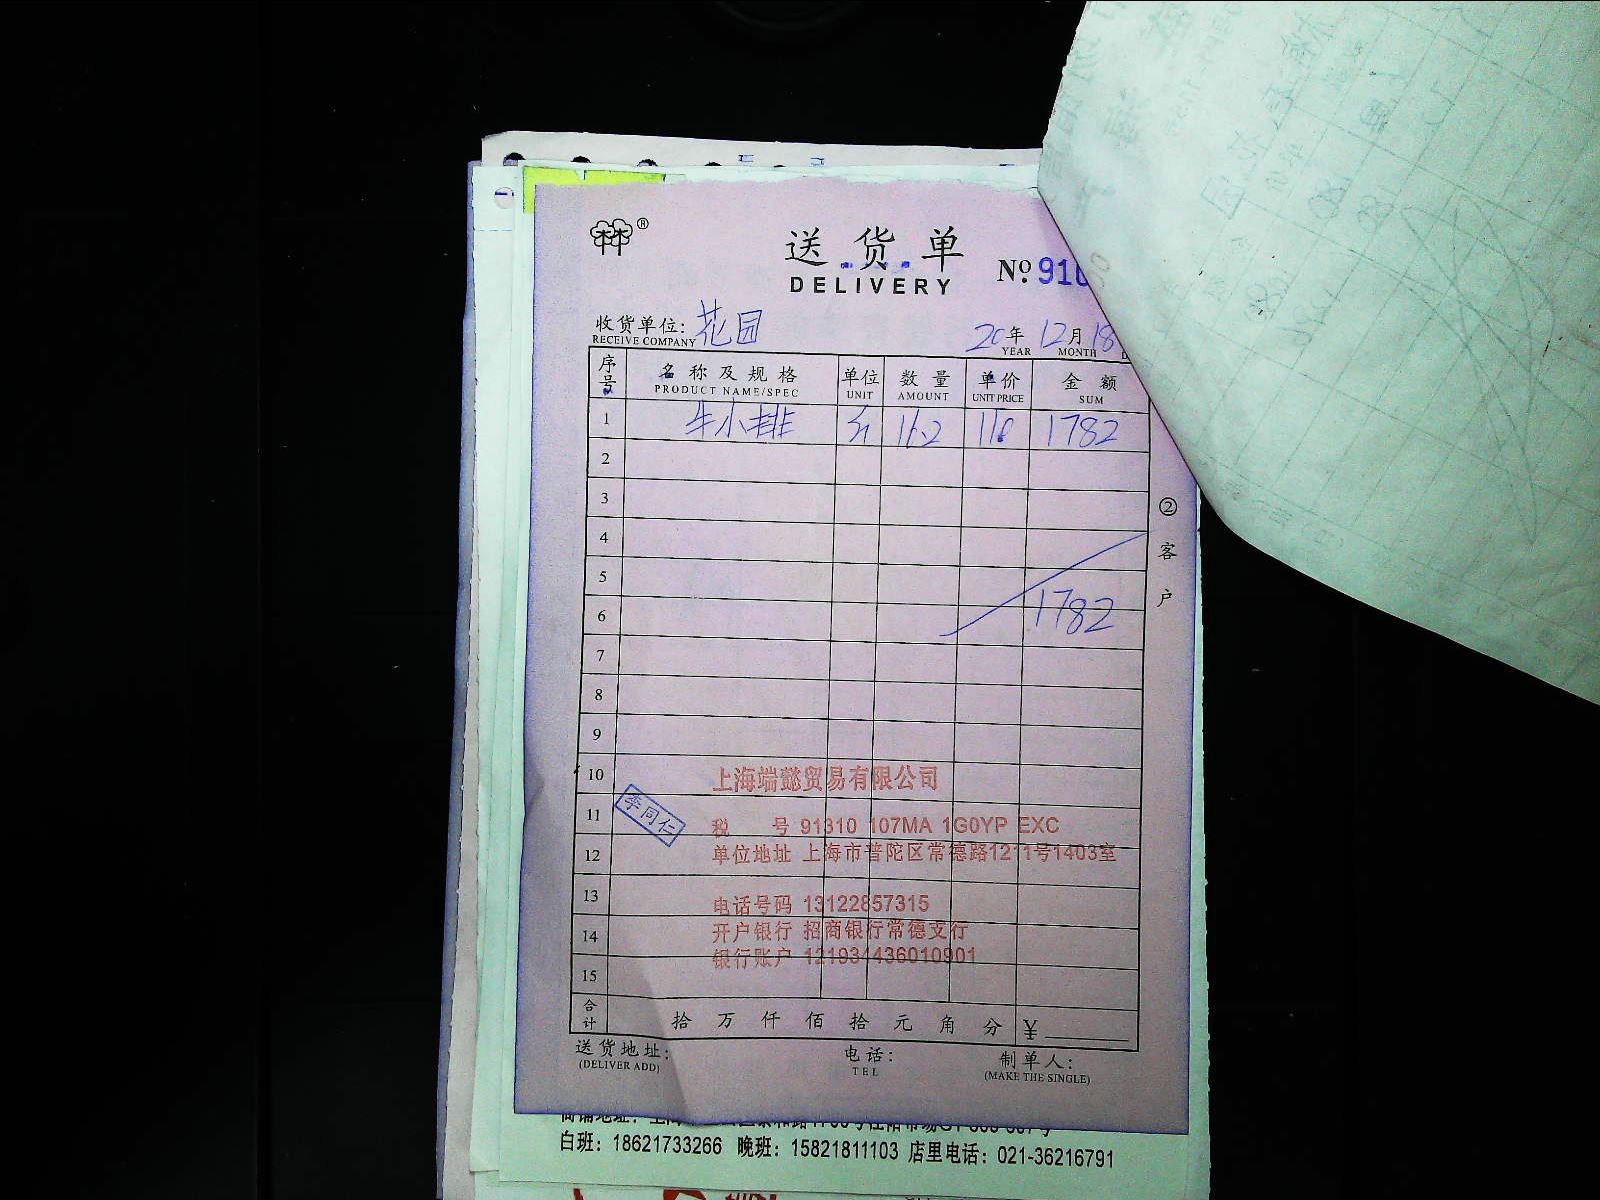 ®
送货单
DELIVERY
№ 910
收货单位: 花园
RECEIVE COMPANY
20年12月18
YEAR MONTH
序号 名称及规格 单位 数量 单价 金额
PRODUCT NAME/SPEC UNIT AMOUNT UNIT PRICE SUM
1 牛小排 斤 16.2 110 1782
2
3
4
5
6 1782
7
8
9
10
11
12
13
14
15
②客户
上海端懿贸易有限公司
李同仁
税 号 91310 107MA 1G0YP EXC
单位地址 上海市普陀区常德路1211号1403室
电话号码 13122857315
开户银行 招商银行常德支行
银行账户 121934436010901
合计 拾万仟佰拾元角分 ¥
送货地址: 电话: 制单人:
(DELIVER ADD) TEL (MAKE THE SINGLE)
白班: 18621733266 晚班: 15821811103 店里电话: 021-36216791